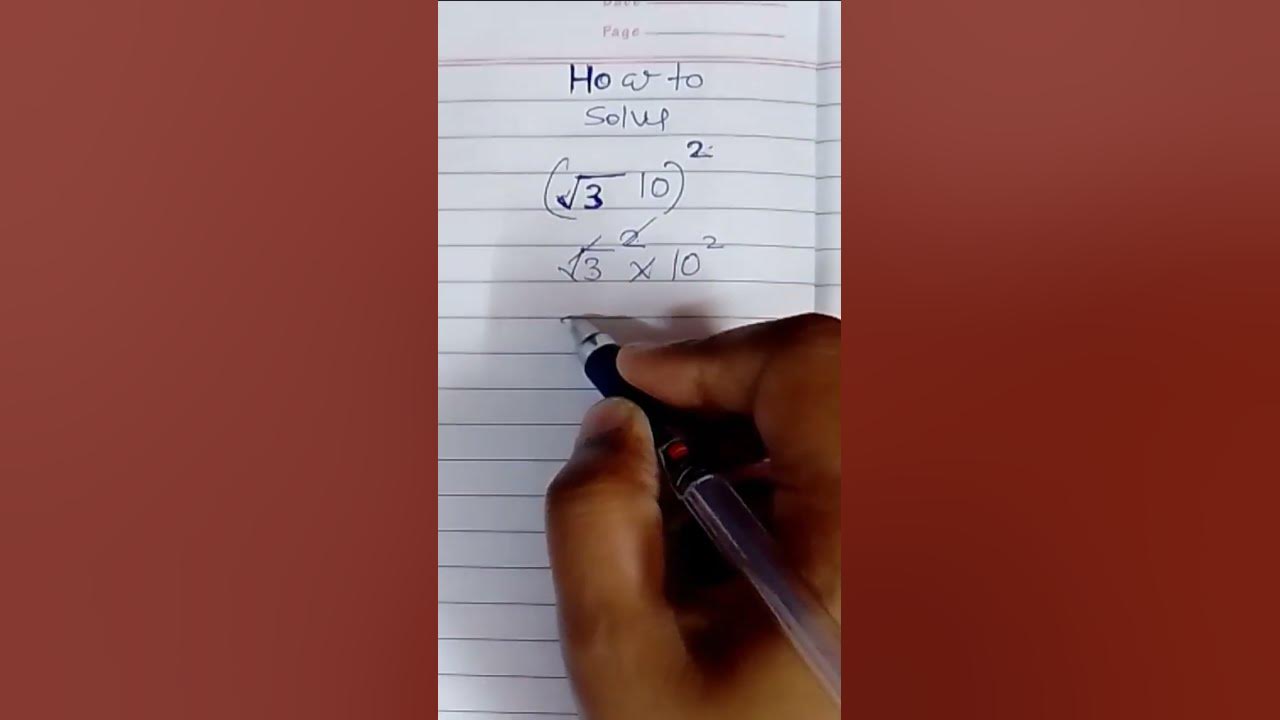 Date
Page
How to
Solve
(√3 10)²
√3² × 10²